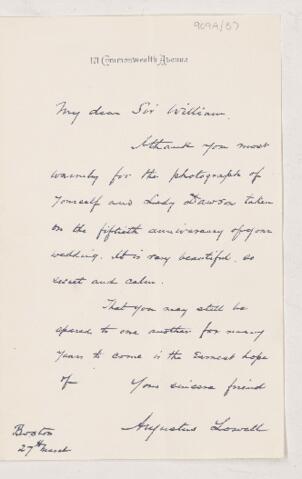 909A/87
171 Commonwealth Avenue
My dear Sir William,
I thank you most
warmly for the photograph of
yourself and Lady Dawson taken
on the fiftieth anniversary of your
wedding. It is very beautiful, so
sweet and calm.
That you may still be
spared to one another for many
years to come is the earnest hope
of Your sincere friend
Augustus Lowell
Boston
27th March